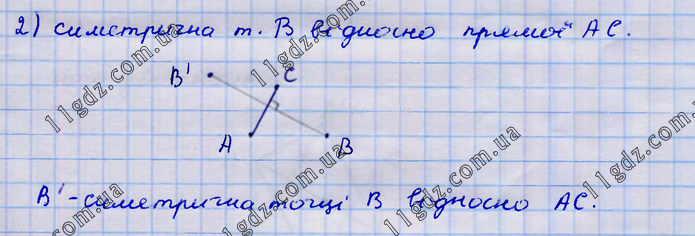 2) симетрична т. В відносно прямої АС.
B'
C
A
B
B' - симетрична точці В відносно АС.
11gdz.com.ua
11gdz.com.ua
11gdz.com.ua
11gdz.com.ua
11gdz.com.ua
11gdz.com.ua